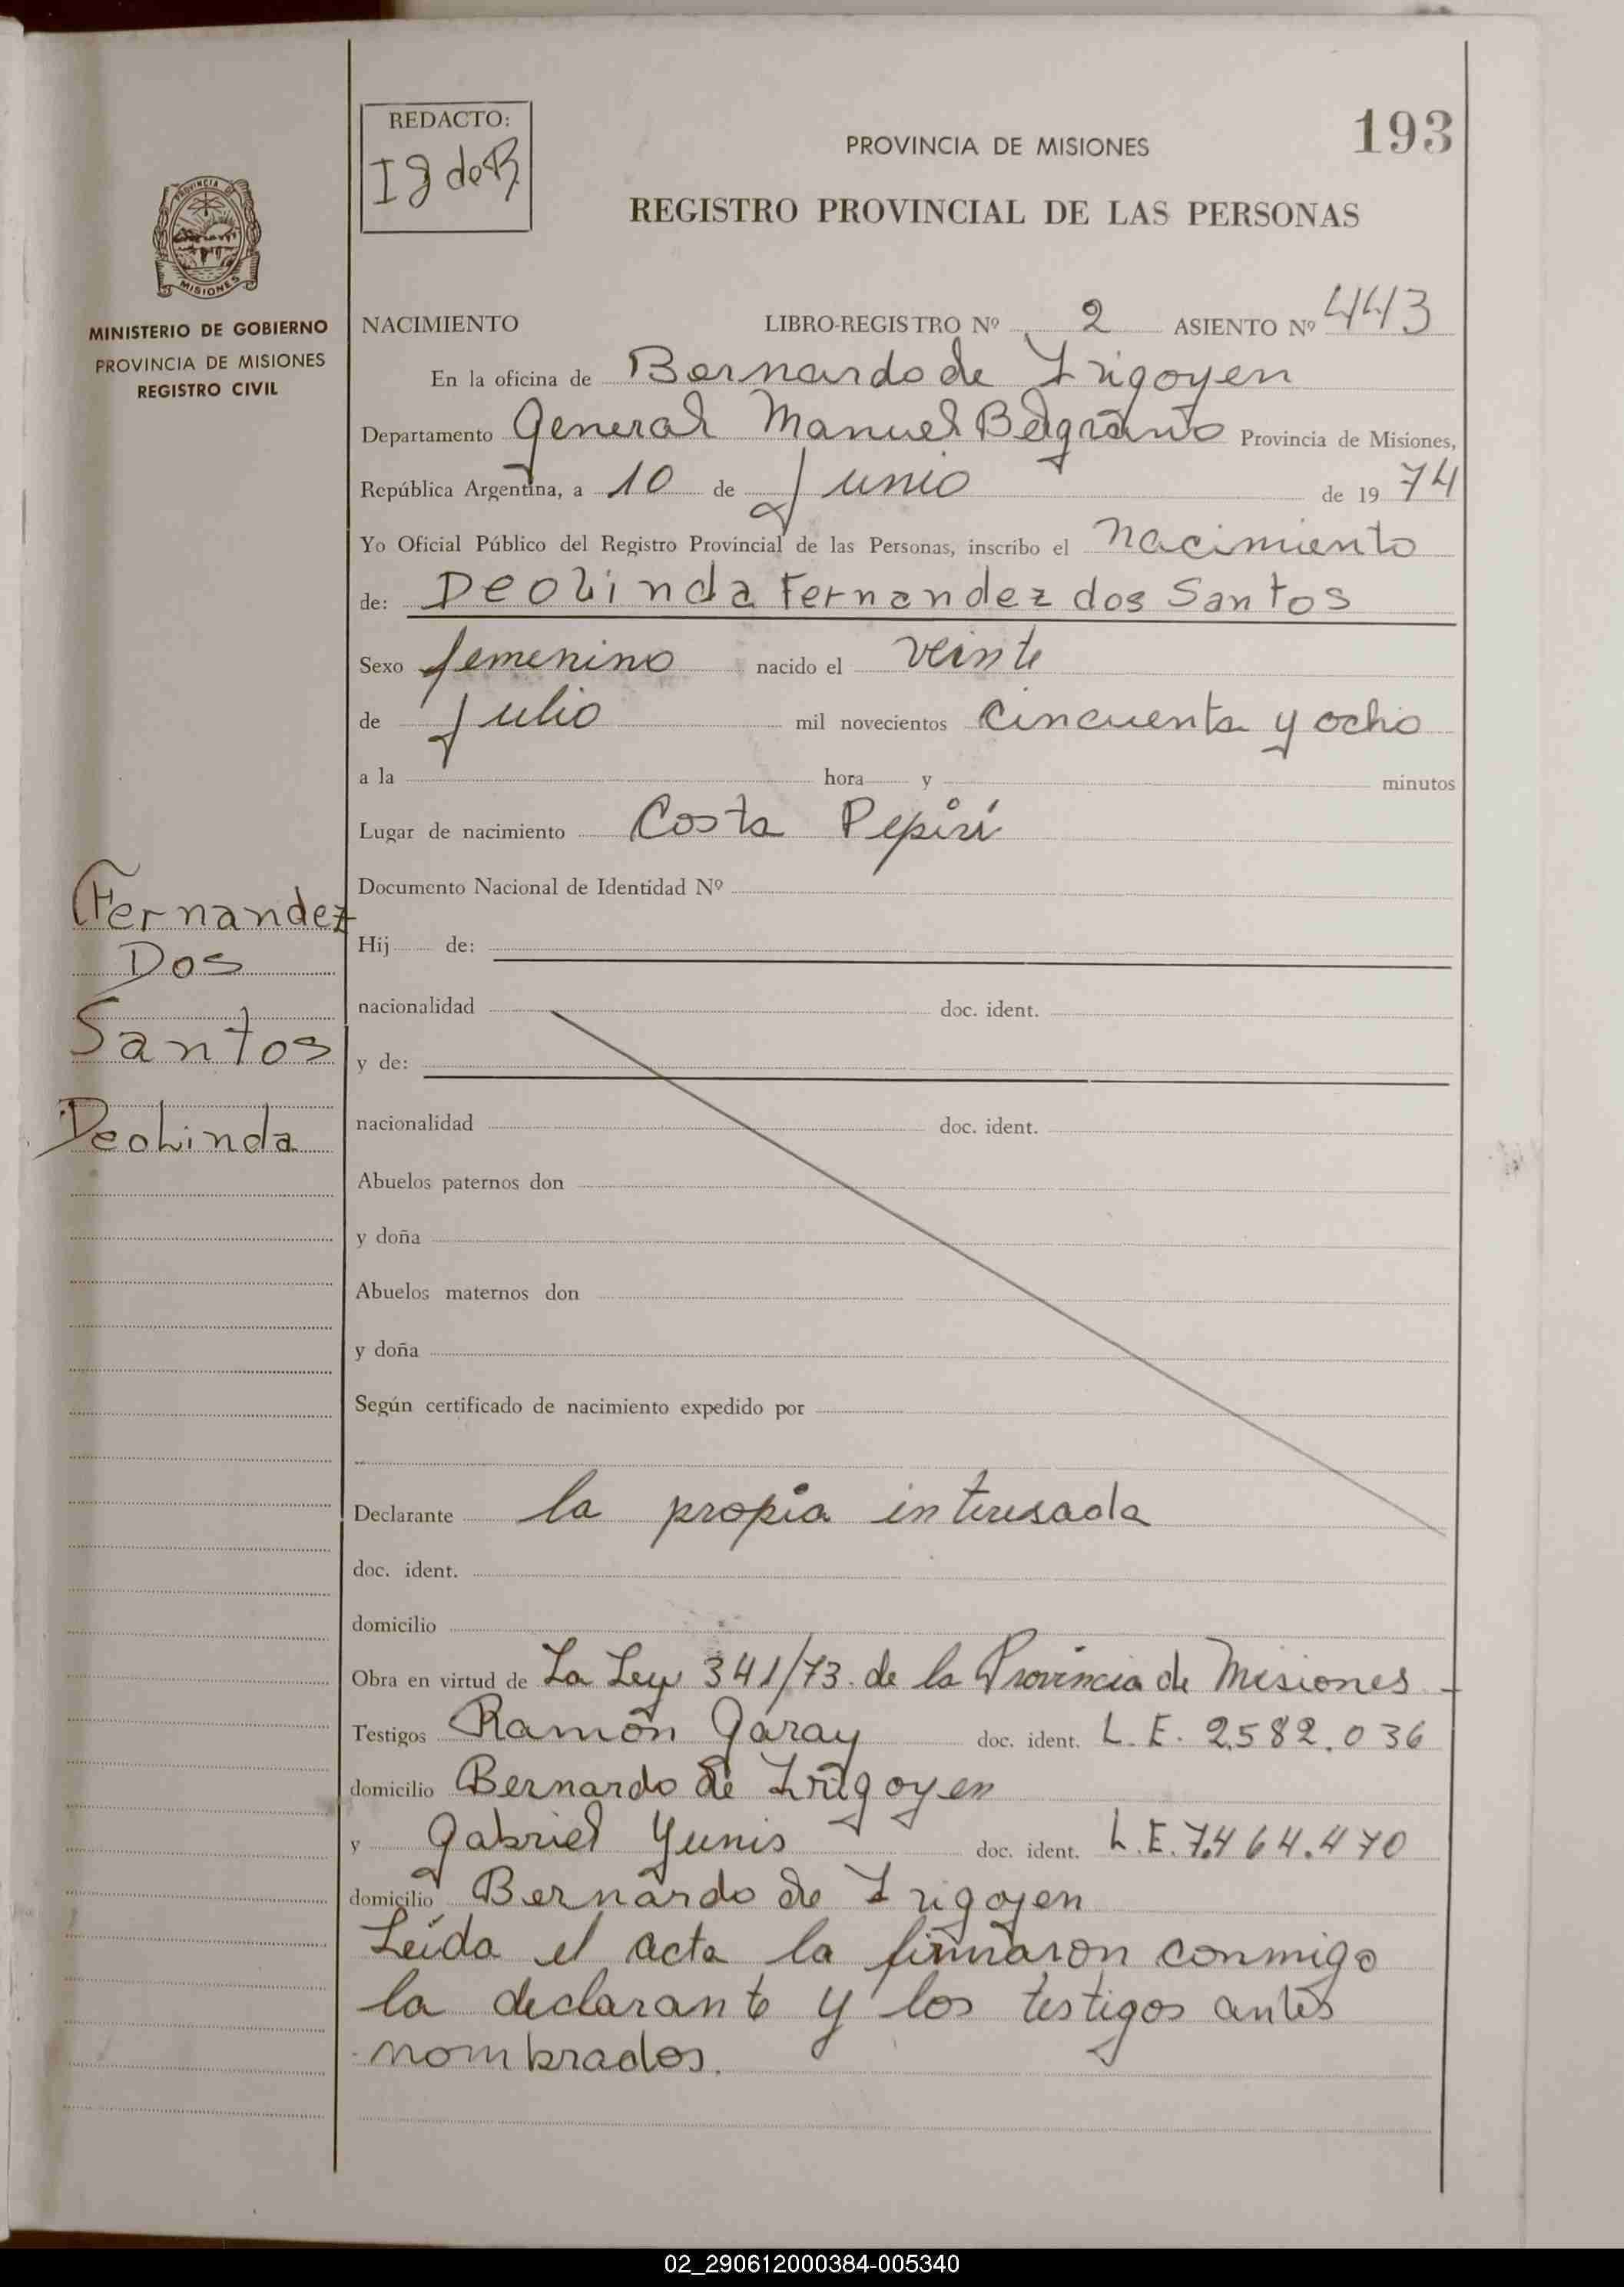 193
REDACTO:
I g de B.
PROVINCIA DE MISIONES
REGISTRO PROVINCIAL DE LAS PERSONAS
PROVINCIA DE
MISIONES
MINISTERIO DE GOBIERNO
PROVINCIA DE MISIONES
REGISTRO CIVIL
NACIMIENTO LIBRO-REGISTRO Nº 2 ASIENTO Nº 443
En la oficina de Bernardo de Irigoyen
Departamento General Manuel Belgrano Provincia de Misiones,
República Argentina, a 10 de Junio de 1974
Yo Oficial Público del Registro Provincial de las Personas, inscribo el nacimiento
de: Deolinda Fernandez dos Santos
Sexo femenino nacido el veinte
de Julio mil novecientos cincuenta y ocho
a la hora y minutos
Lugar de nacimiento Costa Pepirí
Fernandez
Dos
Santos
Deolinda
Documento Nacional de Identidad Nº
Hij de:
nacionalidad doc. ident.
y de:
nacionalidad doc. ident.
Abuelos paternos don
y doña
Abuelos maternos don
y doña
Según certificado de nacimiento expedido por
Declarante la propia interesada
doc. ident.
domicilio
Obra en virtud de La Ley 341/73. de la Provincia de Misiones -
Testigos Ramón Garay doc. ident. L. E. 2.582.036
domicilio Bernardo de Irigoyen
y Gabriel Yunis doc. ident. L.E. 7.464.470
domicilio Bernardo de Irigoyen
Leída el acta la firmaron conmigo
la declarante y los testigos antes
nombrados.
02_290612000384-005340